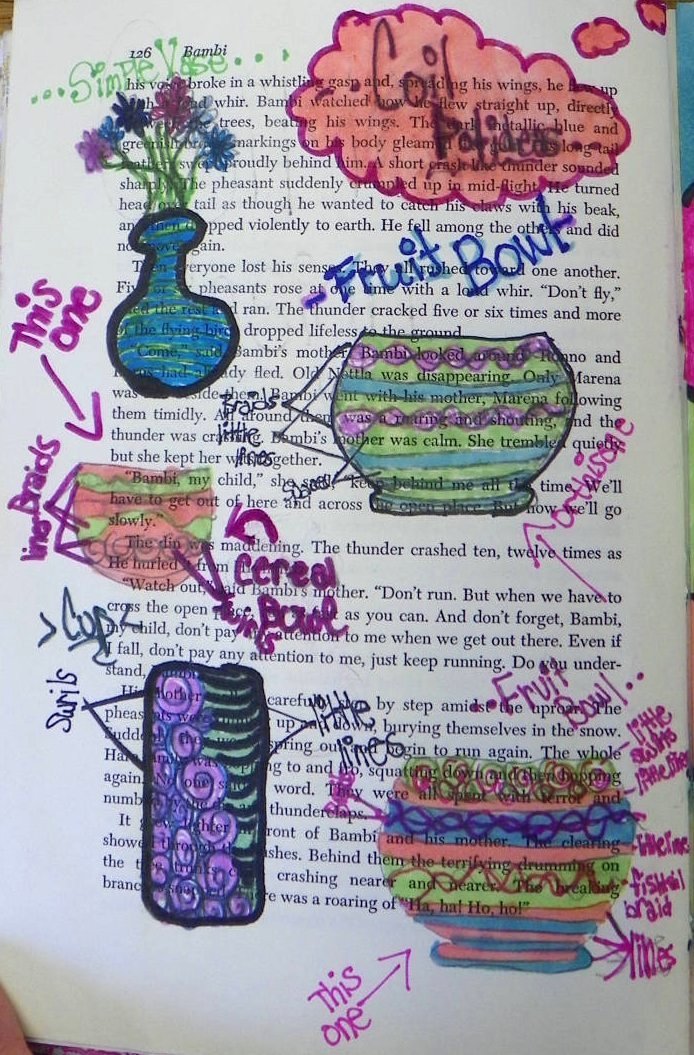 126 Bambi
...Simple Vase...
Coil
his voice broke in a whistling gasp and, spreading his wings, he flew up
whir. Bambi watched how he flew straight up, directly
trees, beating his wings. The dark metallic blue and
greenish markings on his body gleamed long tail
proudly behind him. A short crash like thunder sounded
sharply. The pheasant suddenly crumpled up in mid-flight. He turned
head over tail as though he wanted to catch his claws with his beak,
and then dropped violently to earth. He fell among the others and did
not move again.
-Fruit Bowl
Then everyone lost his senses. They all rushed toward one another.
Five or six pheasants rose at one time with a loud whir. "Don't fly,"
cried the rest and ran. The thunder cracked five or six times and more
of the flying birds dropped lifeless to the ground.
This
one
"Come," said Bambi's mother. Bambi looked around. Ronno and
Karus had already fled. Old Nettla was disappearing. Only Marena
was beside them. Bambi went with his mother, Marena following
them timidly. All around them was a roaring and shouting, and the
thunder was crashing. Bambi's mother was calm. She trembled quietly
but she kept her wits together.
Braids
little
lines
"Bambi, my child," she said, "keep behind me all the time. We'll
have to get out of here and across the open place. But now we'll go
slowly."
Braids
lines
The din was maddening. The thunder crashed ten, twelve times as
He hurled it from
Cereal
Bowl
"Watch out," said Bambi's mother. "Don't run. But when we have to
cross the open place, as you can. And don't forget, Bambi,
my child, don't pay any attention to me when we get out there. Even if
I fall, don't pay any attention to me, just keep running. Do you under-
stand, Bambi
>Cup<
His mother carefully by step amidst the uproar. The
pheasants were up and down, burying themselves in the snow.
Suddenly the spring out begin to run again. The whole
Hare family was to and fro, squatting down and then hopping
again. No one said a word. They were all spent with terror and
numbed by the din and thunderclaps.
Swirls
little
lines
..Fruit
Bowl..
It grew lighter in front of Bambi and his mother. The clearing
showed through the bushes. Behind them the terrifying drumming on
the tree trunks crashing nearer and nearer. The breaking
branches snapped. There was a roaring of "Ha, ha! Ho, ho!"
little
swirls
little line
little line
fishtail
braid
lines
This
one